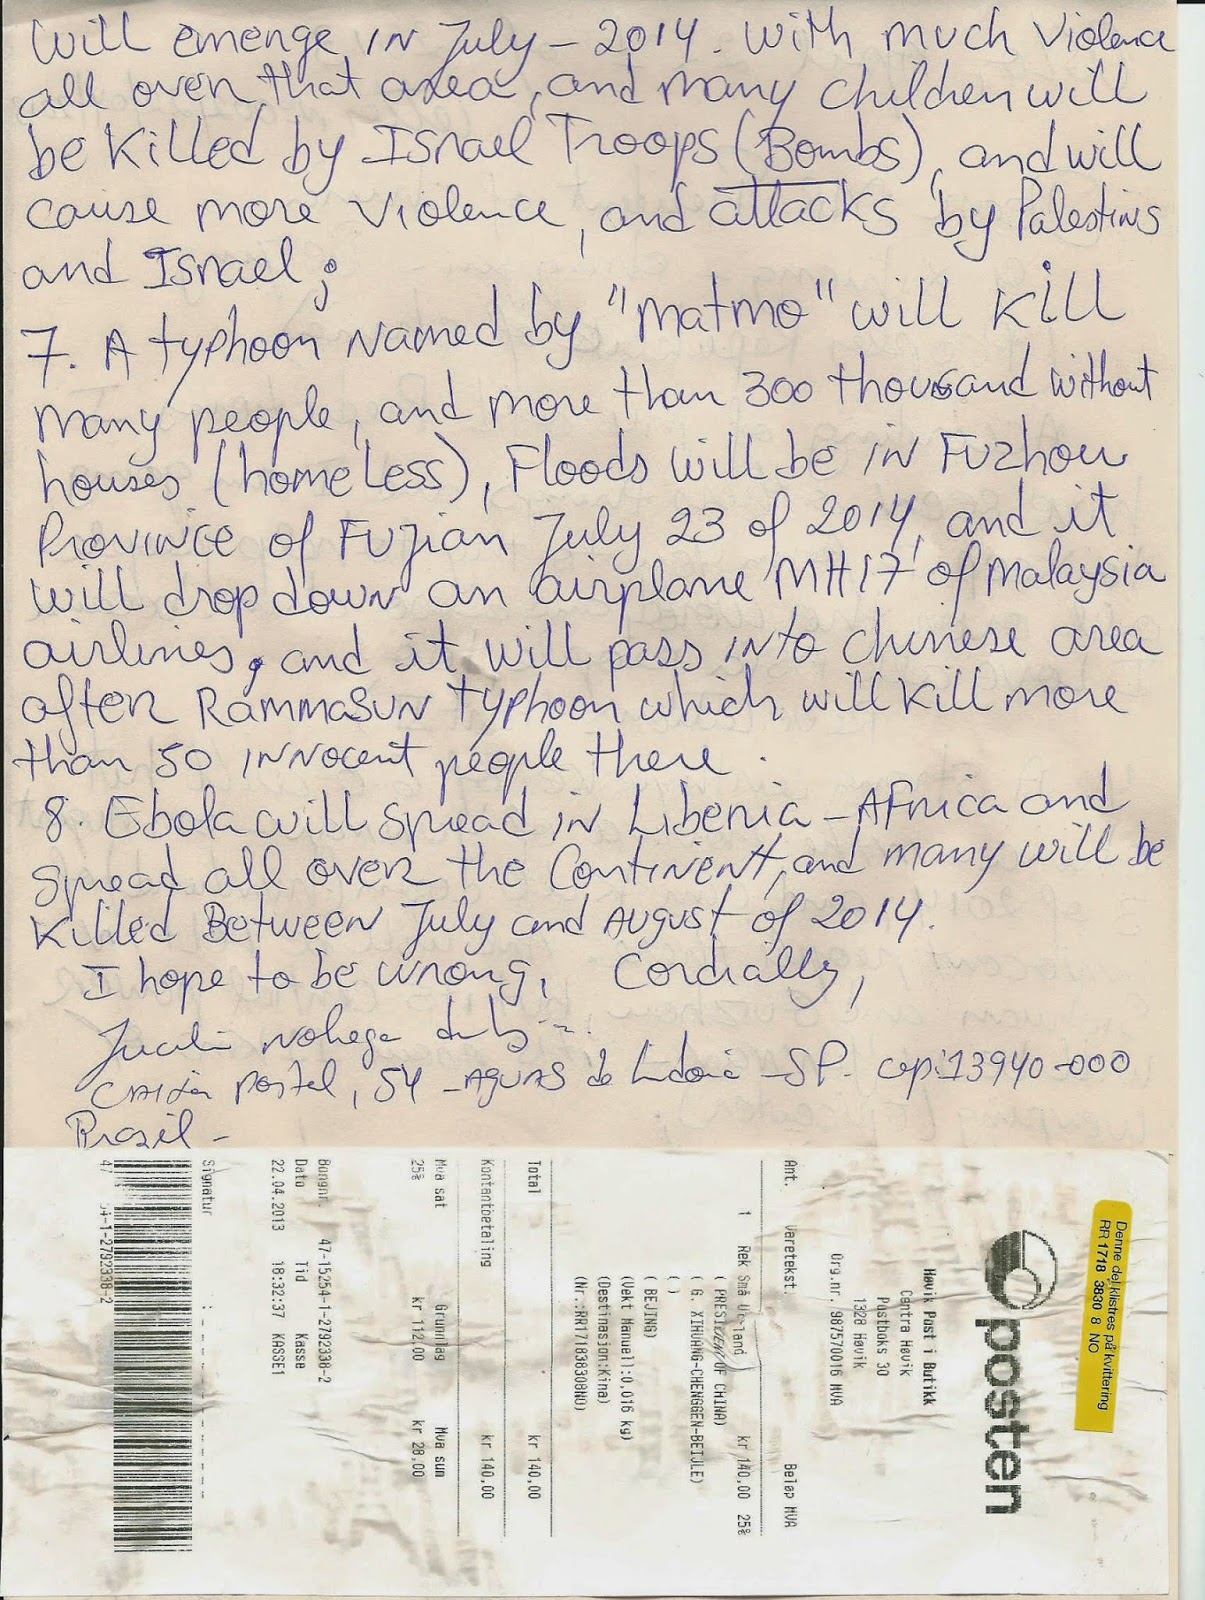 will emenge in July - 2014. with much violence
all over that area, and many children will
be killed by Israel Troops (Bombs), and will
cause more violence, and attacks by Palestins
and Israel;
7. A typhoon named by "matmo" will kill
many people, and more than 300 thousand without
houses (homeless), Floods will be in Fuzhou
Province of Fujian July 23 of 2014, and it
will drop down an airplane MH17 of malaysia
airlines, and it will pass into chinese area
after Rammasun typhoon which will kill more
than 50 innocent people there.
8. Ebola will spread in Liberia - Africa and
spread all over the Continent, and many will be
killed Between July and August of 2014.
I hope to be wrong, Cordially,
Caixa Postal, 54 - Aguas de Lindoia - SP. cep: 13940-000
Brazil -
Denne del klistres på kvittering
RR 1718 3830 8 NO
posten
Høvik Post i Butikk
Centra Høvik
Postboks 30
1328 Høvik
Org.nr. 987570016 MVA
Ant. Varetekst. Beløp MVA
1 Rek Små Utland kr 140,00 25%
( PRESIDENT OF CHINA)
( G. XIHUANG-CHENGGEN-BEIJLE)
( )
( BEJING)
(Vekt Manuell):0,016 kg)
(Destinasjon:Kina)
(Nr.:RR171838308NO)
Total kr 140,00
Kontantbetaling kr 140,00
Mva sat Grunnlag Mva sum
25% kr 112,00 kr 28,00
Bongnr. 47-15254-1-2792338-2
Dato Tid Kasse
22.04.2013 18:32:37 KASSE1
Signatur
47 54-1-2792338-2